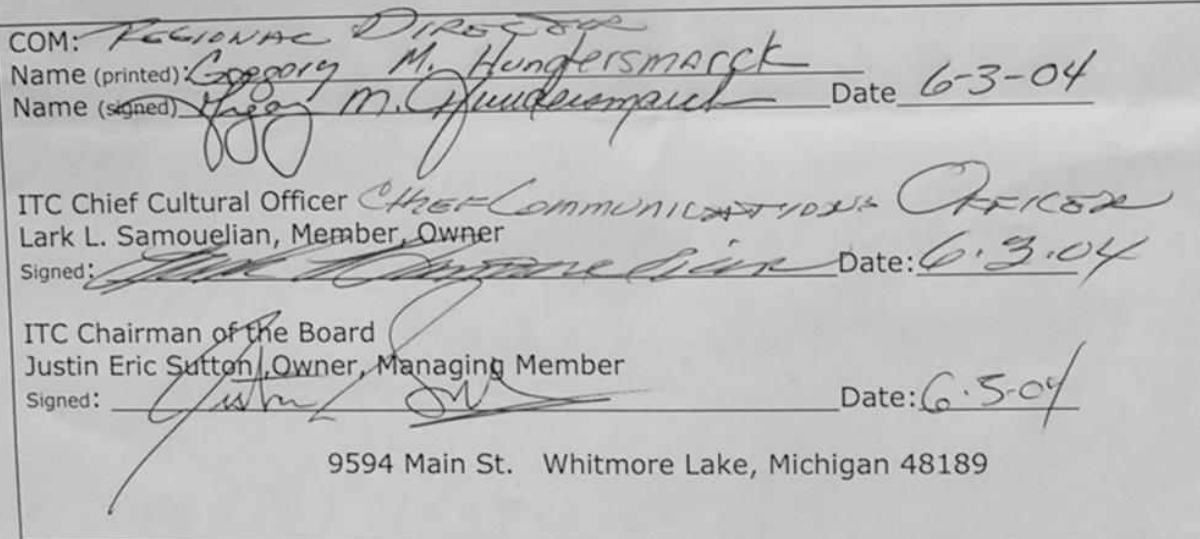 COM: REGIONAL DIRECTOR
Name (printed): Gregory M. Hundersmarck
Name (signed) Gregory M. Hundersmarck Date 6-3-04
ITC Chief Cultural Officer CHIEF COMMUNICATIONS OFFICER
Lark L. Samouelian, Member, Owner
Signed: Lark L. Samouelian Date: 6.3.04
ITC Chairman of the Board
Justin Eric Sutton, Owner, Managing Member
Signed: Justin Date: 6.5-04
9594 Main St. Whitmore Lake, Michigan 48189